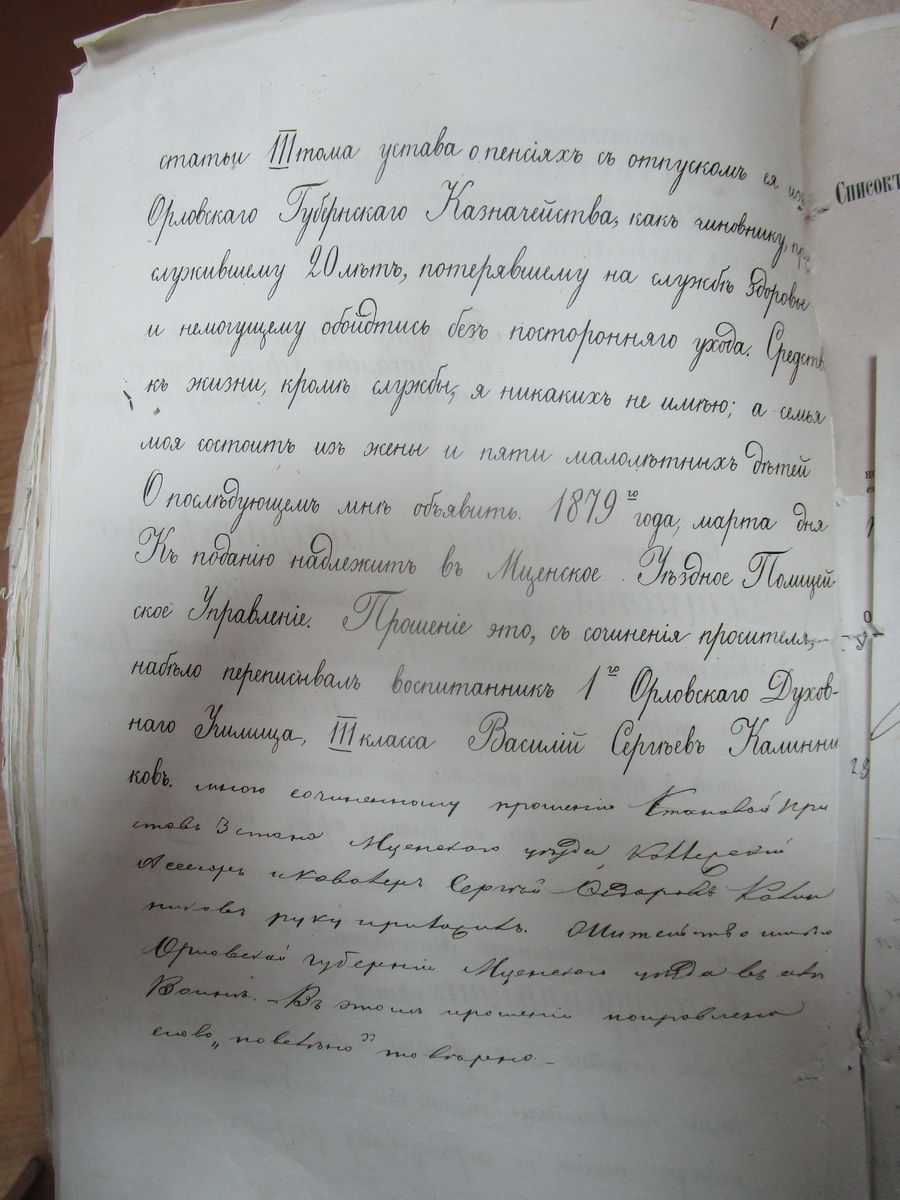 статьи III тома устава о пенсіяхъ съ отпускомъ ея изъ
Орловскаго Губернскаго Казначейства, какъ чиновнику, про
служившему 20 лѣтъ, потерявшему на службѣ здоровье
и немогущему обойдтись безъ посторонняго ухода. Средствъ
къ жизни, кромѣ службы, я никакихъ не имѣю; а семья
моя состоитъ изъ жены и пяти малолѣтныхъ дѣтей
О послѣдующемъ мнѣ объявить. 1879го года, марта дня
Къ поданію надлежитъ въ Мценское Уѣздное Полицей-
ское Управленіе. Прошеніе это, съ сочиненія просителя,
набѣло переписывалъ воспитанникъ 1го Орловскаго Духов-
наго Училища, III класса Василій Сергѣевъ Калинни
ковъ. мною сочиненному прошенію Становой При
ставъ 3 стана Мценскаго уѣзда, Коллежскій
Асесоръ и Кавалеръ Сергѣй Ѳедоровъ Калин
никовъ руку приложилъ. Жительство имѣю
Орловской губерніи Мценскаго уѣзда въ селѣ
Воинѣ. – Въ этомъ прошеніи поправлено
слово „повелѣно" то вѣрно. –
Списокъ